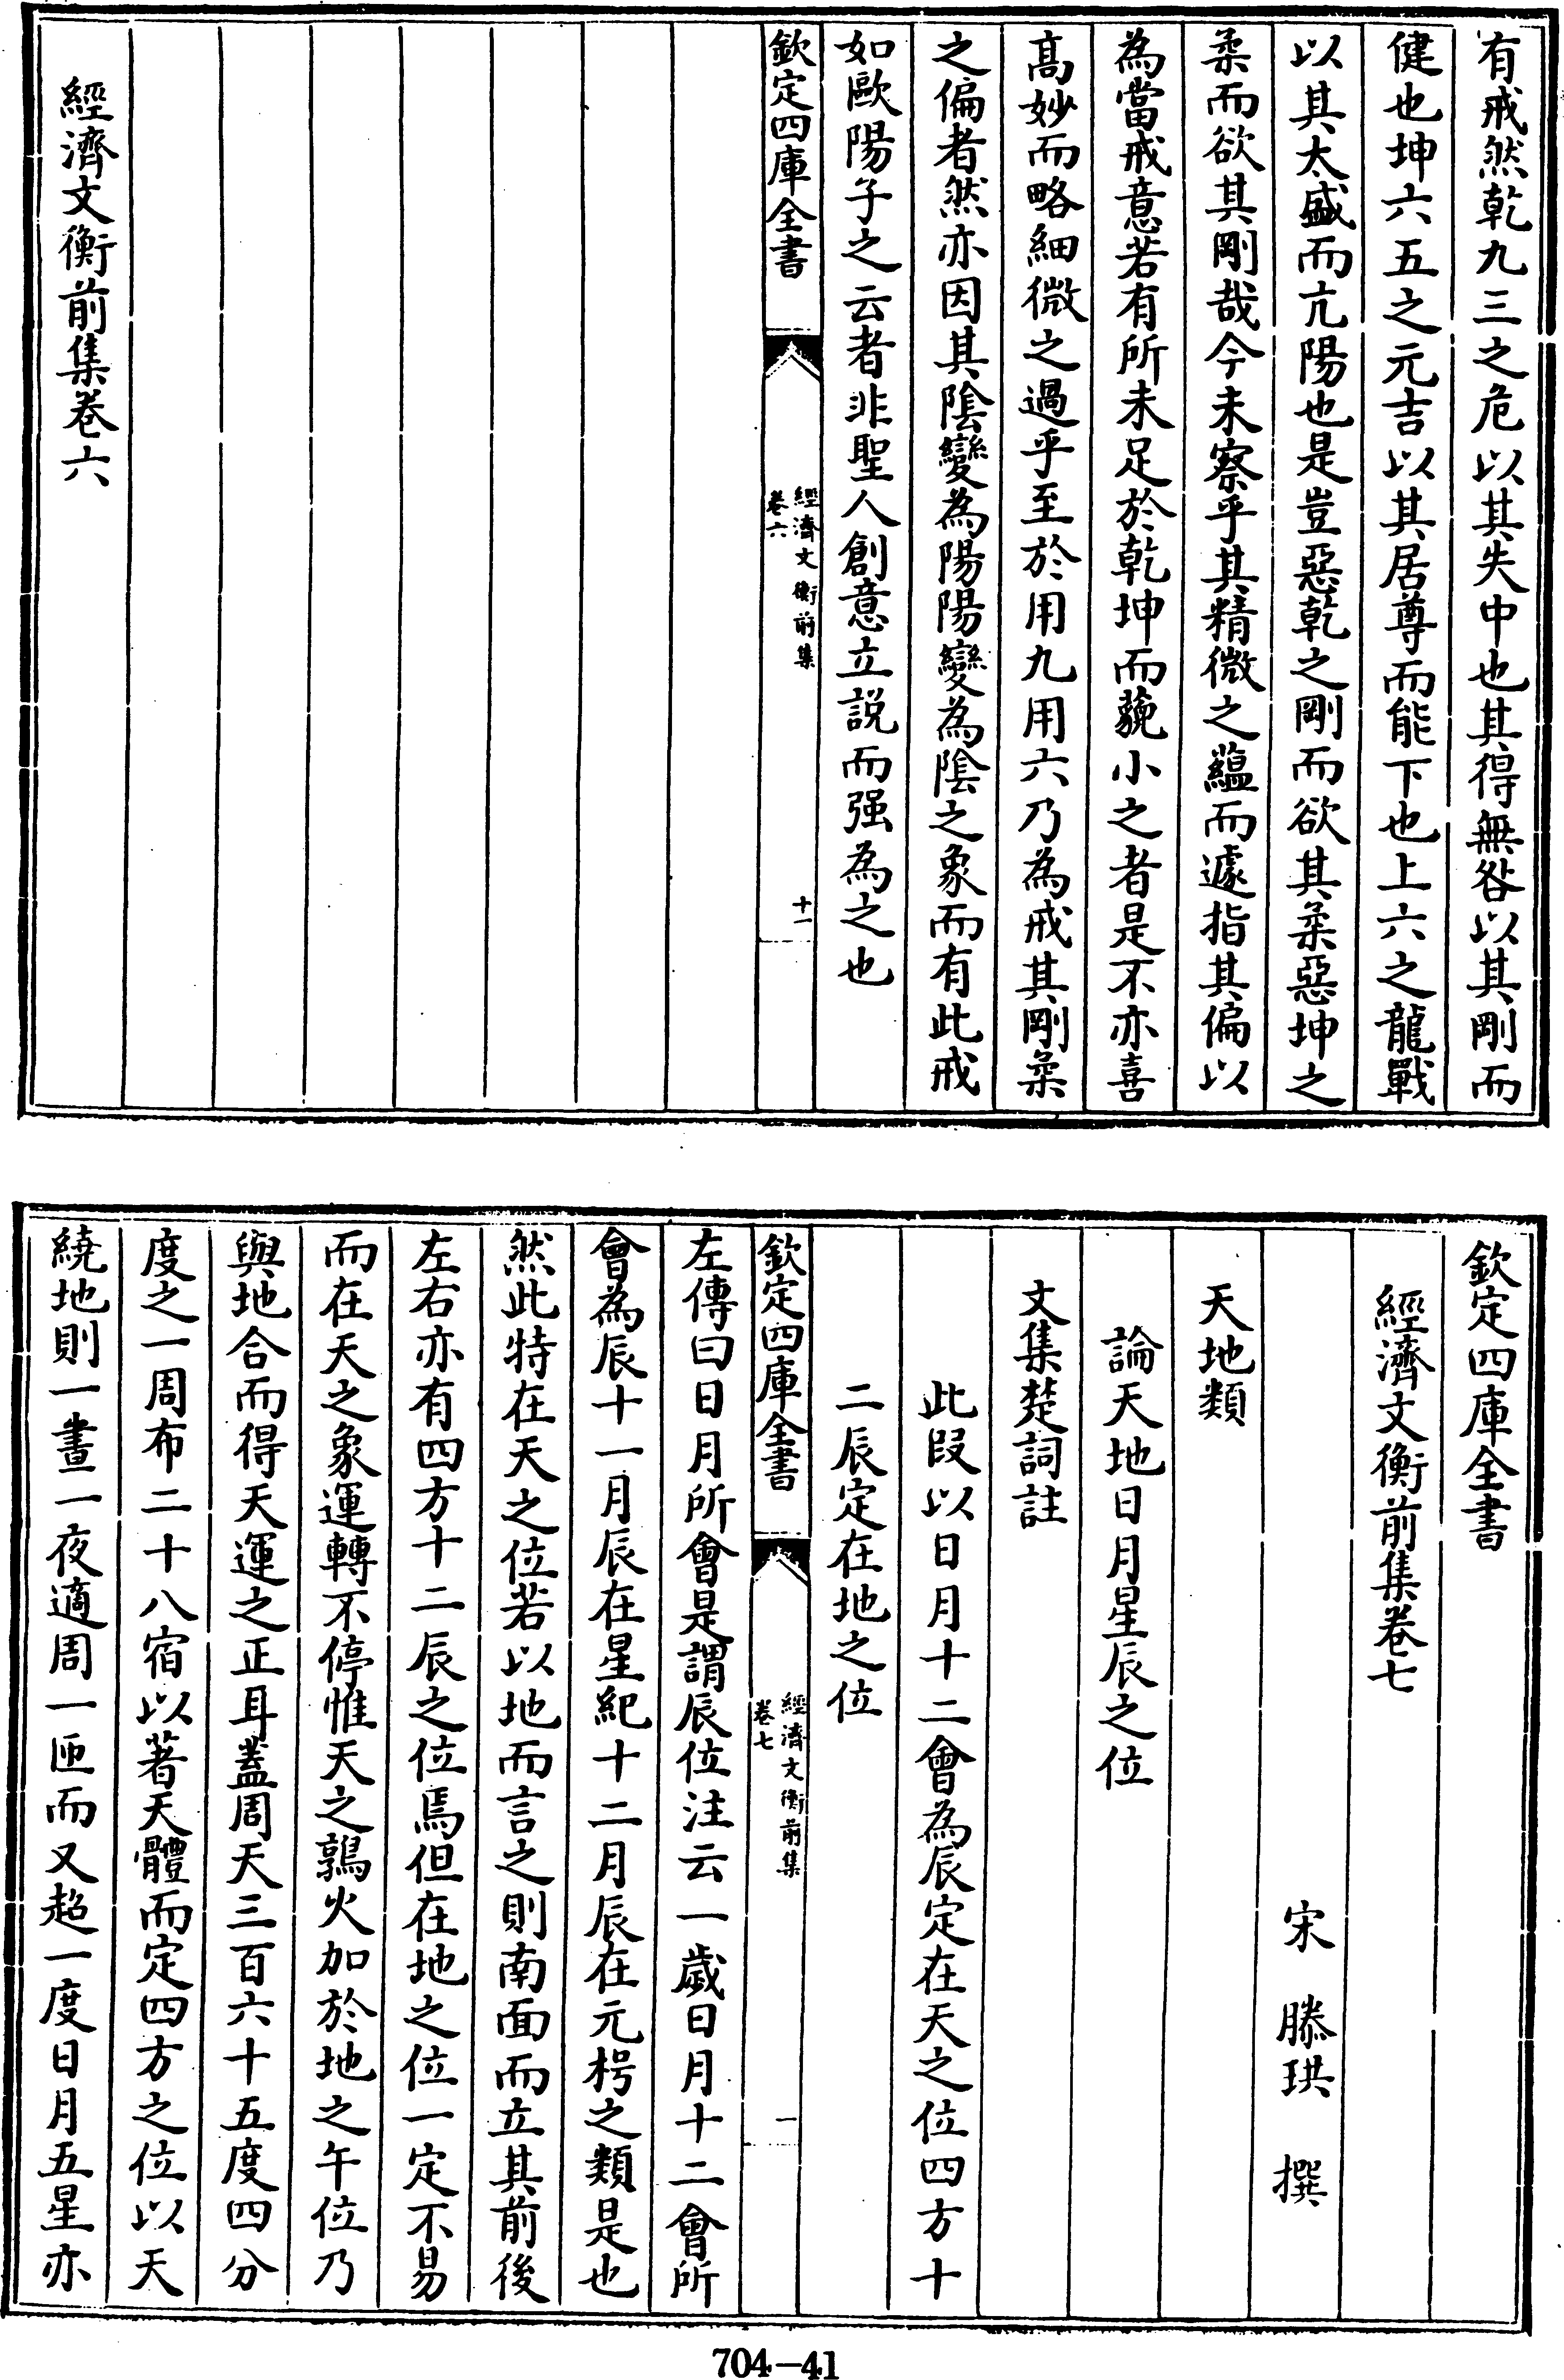 有戒然乾九三之危以其失中也其得無咎以其剛而
健也坤六五之元吉以其居尊而能下也上六之龍戰
以其太盛而亢陽也是豈惡乾之剛而欲其柔惡坤之
柔而欲其剛哉今未察乎其精微之蘊而遽指其偏以
為當戒意若有所未足於乾坤而藐小之者是不亦喜
高妙而略細微之過乎至於用九用六乃為戒其剛柔
之偏者然亦因其陰變為陽陽變為陰之象而有此戒
如歐陽子之云者非聖人創意立説而强為之也
欽定四庫全書
經濟文衡前集
卷六
十一
經濟文衡前集卷六
欽定四庫全書
經濟文衡前集卷七
宋 滕珙 撰
天地類
論天地日月星辰之位
文集楚詞註
此段以日月十二會為辰定在天之位四方十
二辰定在地之位
欽定四庫全書
經濟文衡前集
卷七
一
左傳曰日月所會是謂辰位注云一歲日月十二會所
會為辰十一月辰在星紀十二月辰在元枵之類是也
然此特在天之位若以地而言之則南面而立其前後
左右亦有四方十二辰之位焉但在地之位一定不易
而在天之象運轉不停惟天之鶉火加於地之午位乃
與地合而得天運之正耳蓋周天三百六十五度四分
度之一周布二十八宿以著天體而定四方之位以天
繞地則一晝一夜適周一匝而又超一度日月五星亦
704-41